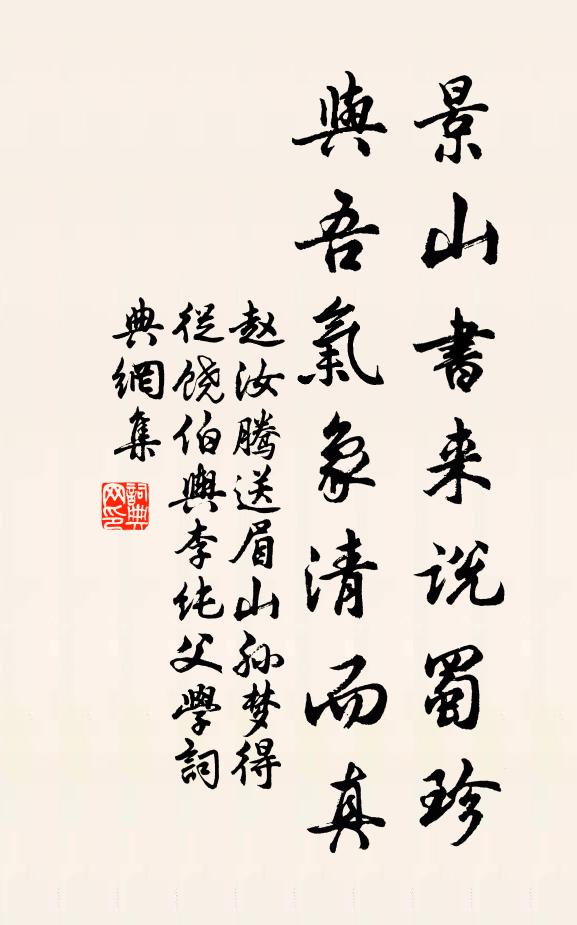 景山書来説蜀珍
與吾氣象清而真
赵汝腾送眉山孙梦得
從饶伯與李纯父學詞
典網集
詞典网印